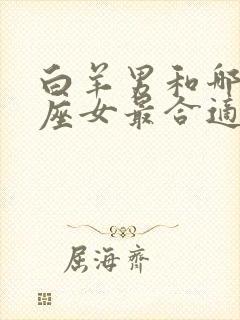 白羊男和哪
座女最合适
屈海齐